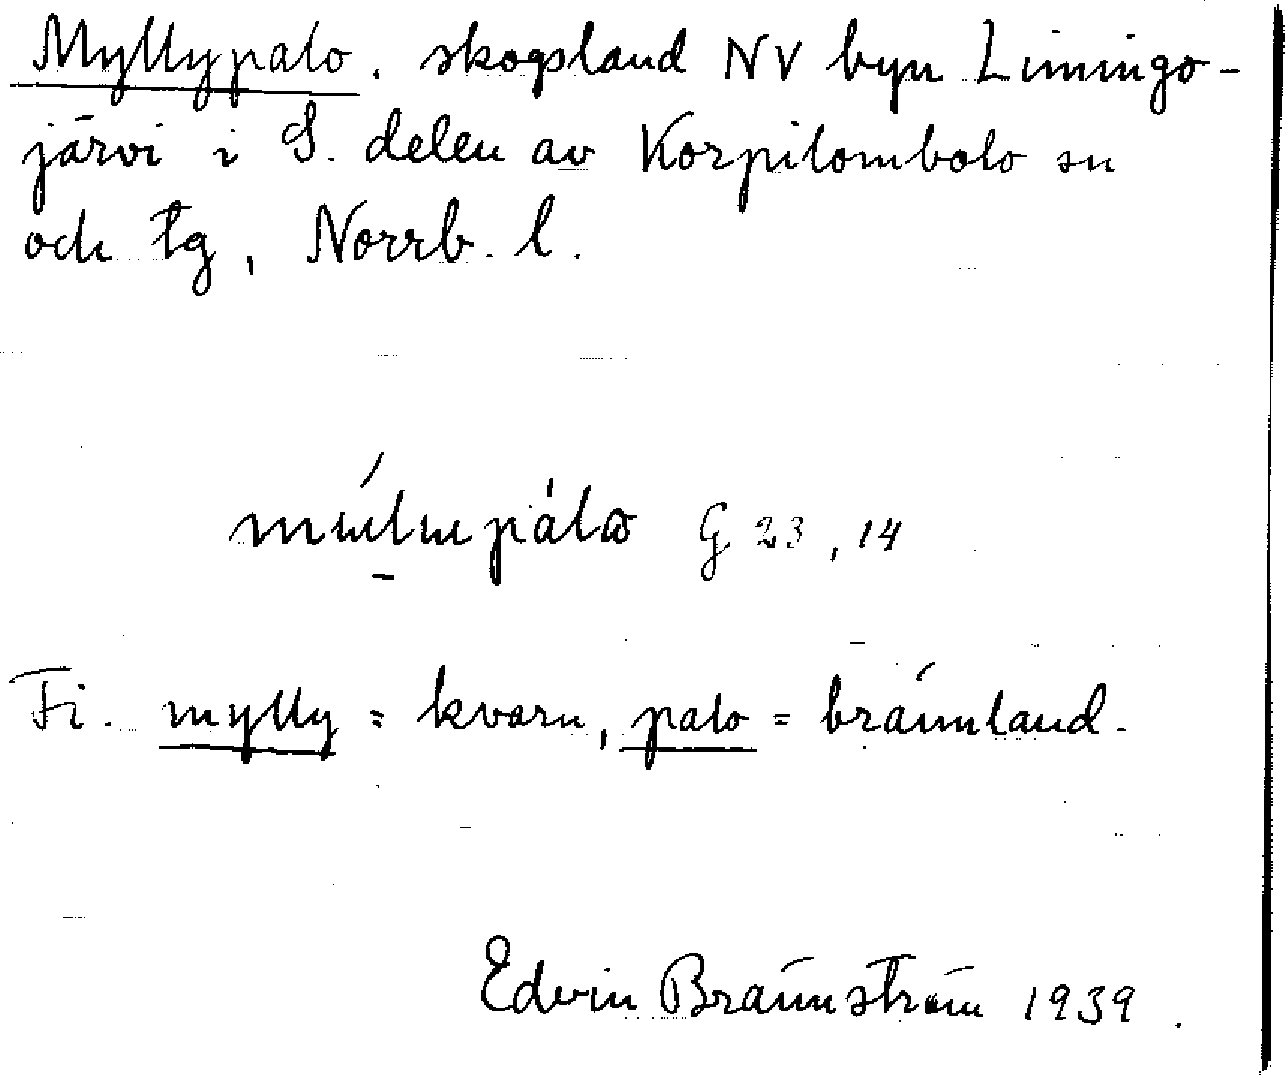 Myllypalo. skogsland NV byn Limingo-
järvi i S. delen av Korpilombolo sn
och tg, Norrb. l.
G 23, 14
Fi. mylly = kvarn, palo = brännland.
Edvin Brännström 1939.